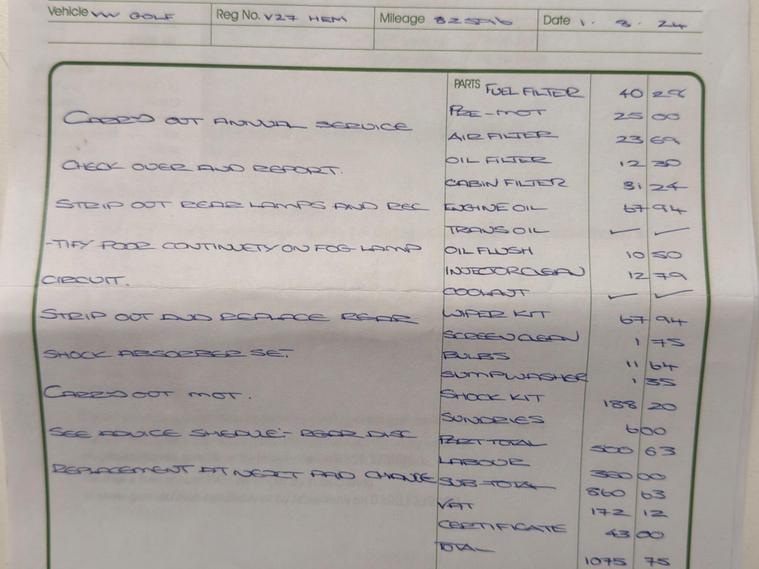 Vehicle VW GOLF Reg No. V27 HEM Mileage Date 1. 8. 24
PARTS FUEL FILTER 40 28
PRE-MOT 25 00
CARRID OUT ANNUAL SERVICE
AIR FILTER 23 69
OIL FILTER 12 30
CHECK OVER AND REPORT.
CABIN FILTER 31 24
STRIP OUT REAR LAMPS AND REC ENGINE OIL 67 94
TRANS OIL ✓ ✓
-TIFY POOR CONTINUETY ON FOG LAMP OIL FLUSH 10 50
INJECTOR CLEAN 12 79
CIRCUIT.
COOLANT ✓ ✓
STRIP OUT AND REPLACE REAR WIPER KIT 67 94
SCREEN CLEAN 1 75
SHOCK ABSORBER SET. BULBS 11 64
SUMPWASHER 1 35
CARRID OUT MOT. SHOCK KIT 188 20
SUNDRIES 6 00
SEE ADVICE SHEDULE:- REAR DISC PART TOTAL 500 63
LABOUR 360 00
REPLACEMENT AT NEXT PAD CHANGE SUB-TOTAL 860 63
VAT 172 12
CERTIFICATE 43 00
TOTAL 1075 75